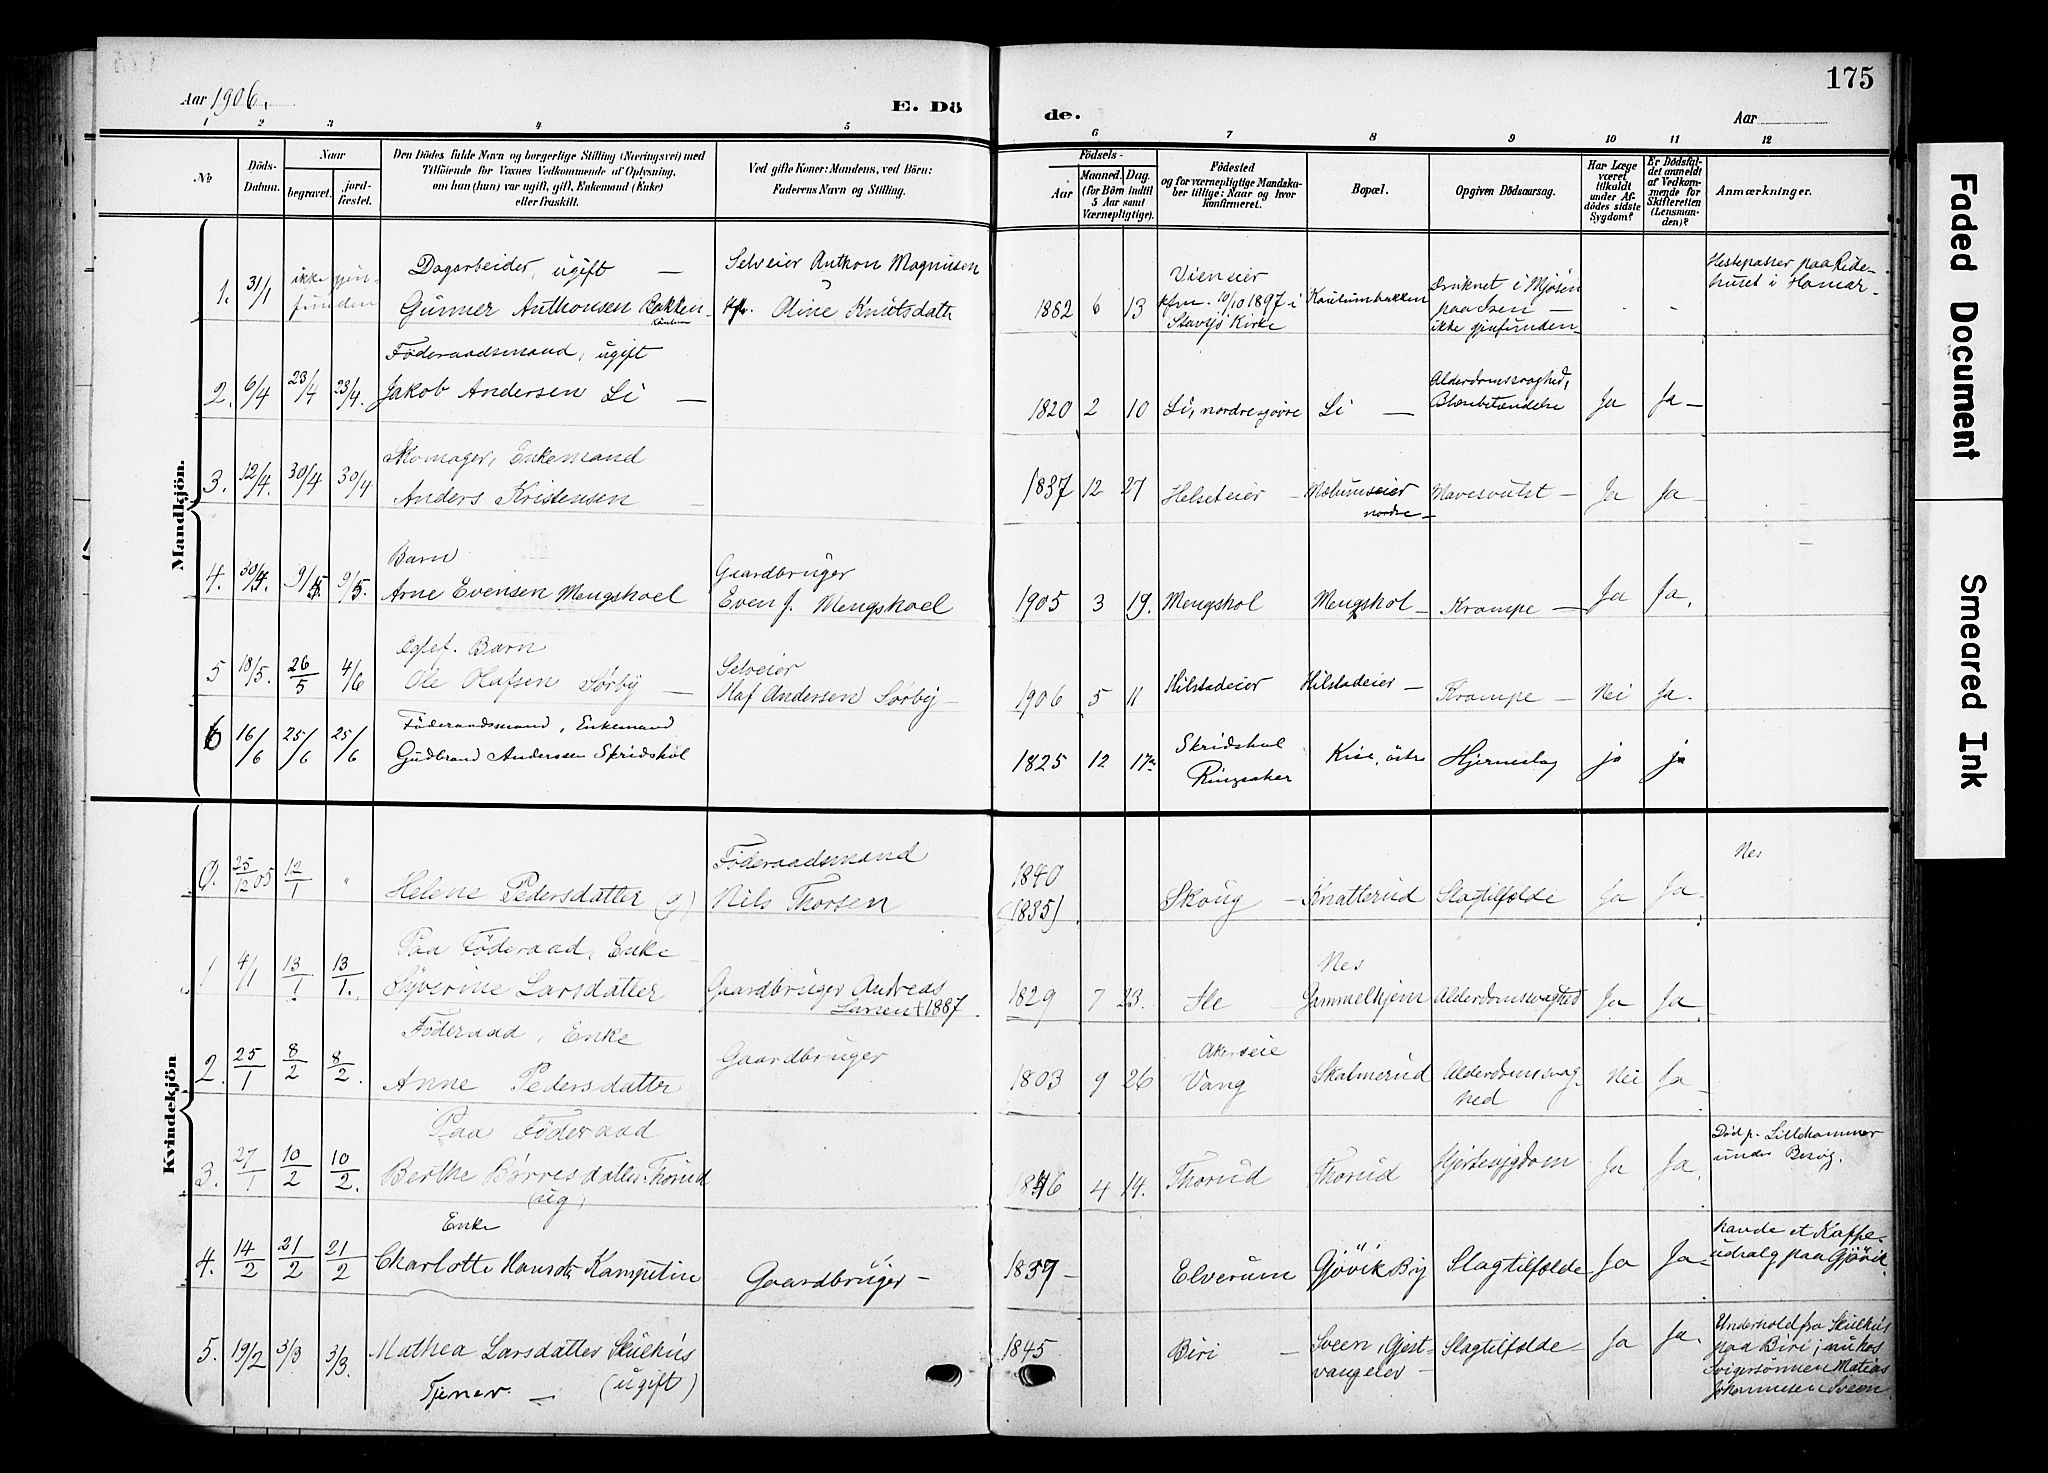 175
Aar 1906.
E. Dö
de.
Aar
1 2 3 4 5 6 7 8 9 10 11 12
No
Döds-Datum.
Naar
begravet.
jord-fæstet.
Den Dödes fulde Navn og borgerlige Stilling (Næringsvei) med
Tilföiende for Voxnes Vedkommende af Oplysning,
om han (hun) var ugift, gift, Enkemand (Enke)
eller fraskilt.
Ved gifte Koner: Mandens, ved Börn:
Faderens Navn og Stilling.
Födsels-
Aar
Maaned. Dag.
(for Börn indtil
5 Aar samt
Værnepligtige).
Födested
og for værnepligtige Mandska-
ber tillige: Naar og hvor
konfirmeret.
Bopæl.
Opgiven Dödsaarsag.
Har Læge
været
tilkaldt
under Af-
dödes sidste
Sygdom?
Er Dödsfal-
det anmeldt
af Vedkom-
mende for
Skifteretten
(Lensman-
den)?
Anmærkninger.
Mandkjön.
1. 31/1 ikke gjen-
funden
Dagarbeider, ugift —
Gunner Anthonsen Bakken
Selveier Anthon Magnusen
Oline Knutsdatt
1882 6 13
Vieneier
kfm. 10/10 1897 i
Stavsjö Kirke
Kaulumbakken
Druknet i Mjösen
paa Isen —
ikke gjenfunden
Hestepasser paa Ride-
huset i Hamar
2. 6/4 23/4 23/4
Föderaadsmand, ugift
Jakob Andersen Li —
1820 2 10 Li, nordre øvre Li —
Alderdomssvaghed,
Blærebetændelse
Ja Ja —
3. 12/4 30/4 30/4
Skomager, Enkemand
Anders Kristensen —
1837 12 27 Helseteier — Mælumseier
nordre —
Mavesvulst — Ja Ja —
4. 30/4 9/5 9/5
Barn
Arne Evensen Mengskoel
Gaardbruger
Even J. Mengskoel
1905 3 19. Mengskol Mengskol — Krampe — Ja Ja.
5 18/5. 26/5 4/6
Egtef. Barn
Ole Olafsen Sørby —
Selveier
Olaf Andersen Sørby —
1906 5 11 Hilstadeier Hilstadeier — Krampe — Nei Ja.
6 16/6 25/6 25/6
Föderaadsmand, Enkemand
Gudbrand Anderssen Skridshol
1825 12 17
Skridshol
Ringsaker
Kise, östre Hjerneslag ja ja
Kvindekjön
0. 25/12 05 12/1 "
Helene Pedersdatter (g)
Föderaadsmand
Nils Thorsen
1840
(1835)
Skoug — Knatterud Slagtilfælde Ja Ja.
Nes
1 4/1 13/1 13/1.
Paa Föderaad, Enke
Syverine Larsdatter
Gaardbruger Andreas
Larsen † 1887
1829 7 23. Ile
Nes
Gammelhjem Alderdomssvaghed Ja Ja.
2. 25/1 8/2 8/2.
Föderaad, Enke
Anne Pedersdatter
Gaardbruger
1803 9 26
Akerseie
Vang
Skalmerud Alderdomssvag-
hed
Nei Ja
3. 27/1 10/2 10/2.
Paa Föderaad
Berthe Börresdatter Thorud
(ug)
1846 4 14. Thorud Thorud Hjertesygdom Ja Ja.
Död p. Lillehammer
under Besög.
4. 14/2 21/2 21/2
Enke
Charlotte Hansdt. Kamputin
Gaardbruger —
1837 — Elverum Gjövik By Slagtilfælde Ja Ja —
havde et Kaffe-
udsalg paa Gjövik.
5. 19/2 3/3 3/3.
Mathea Larsdatter Skulhus
Tjener. — (ugift)
1845 Biri — Sveen, Gjest-
vangeier —
Slagtilfælde Ja Ja.
Underhold fra Skulhus
paa Biri, nu hos
Svigersönnen Matias
Johannesen Sveen
Faded Document
Smeared Ink